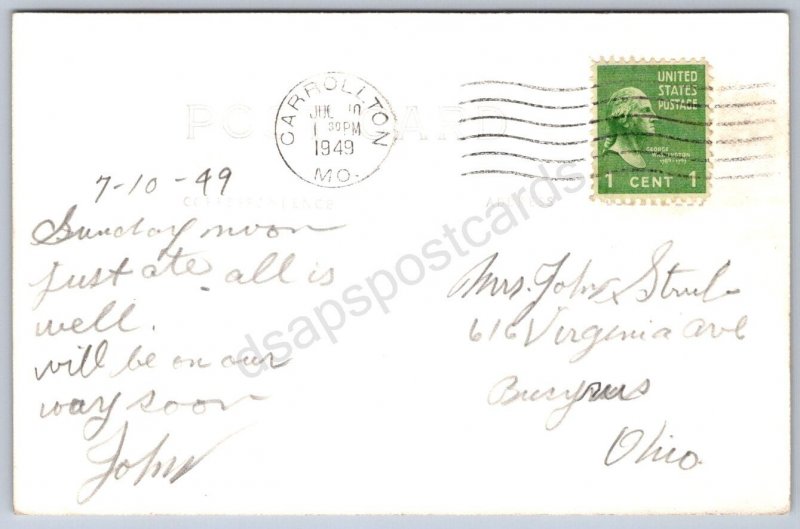 POST CARD
CARROLLTON
JUL 10
1 30 PM
1949
MO.
UNITED
STATES
POSTAGE
GEORGE
WASHINGTON
1 CENT 1
CORRESPONDENCE
ADDRESS
7-10-49
Sunday noon
Just ate all is
well.
will be on our
way soon
John
Mrs. John Strub
616 Virginia ave
Bucyrus
Ohio
dsapspostcards